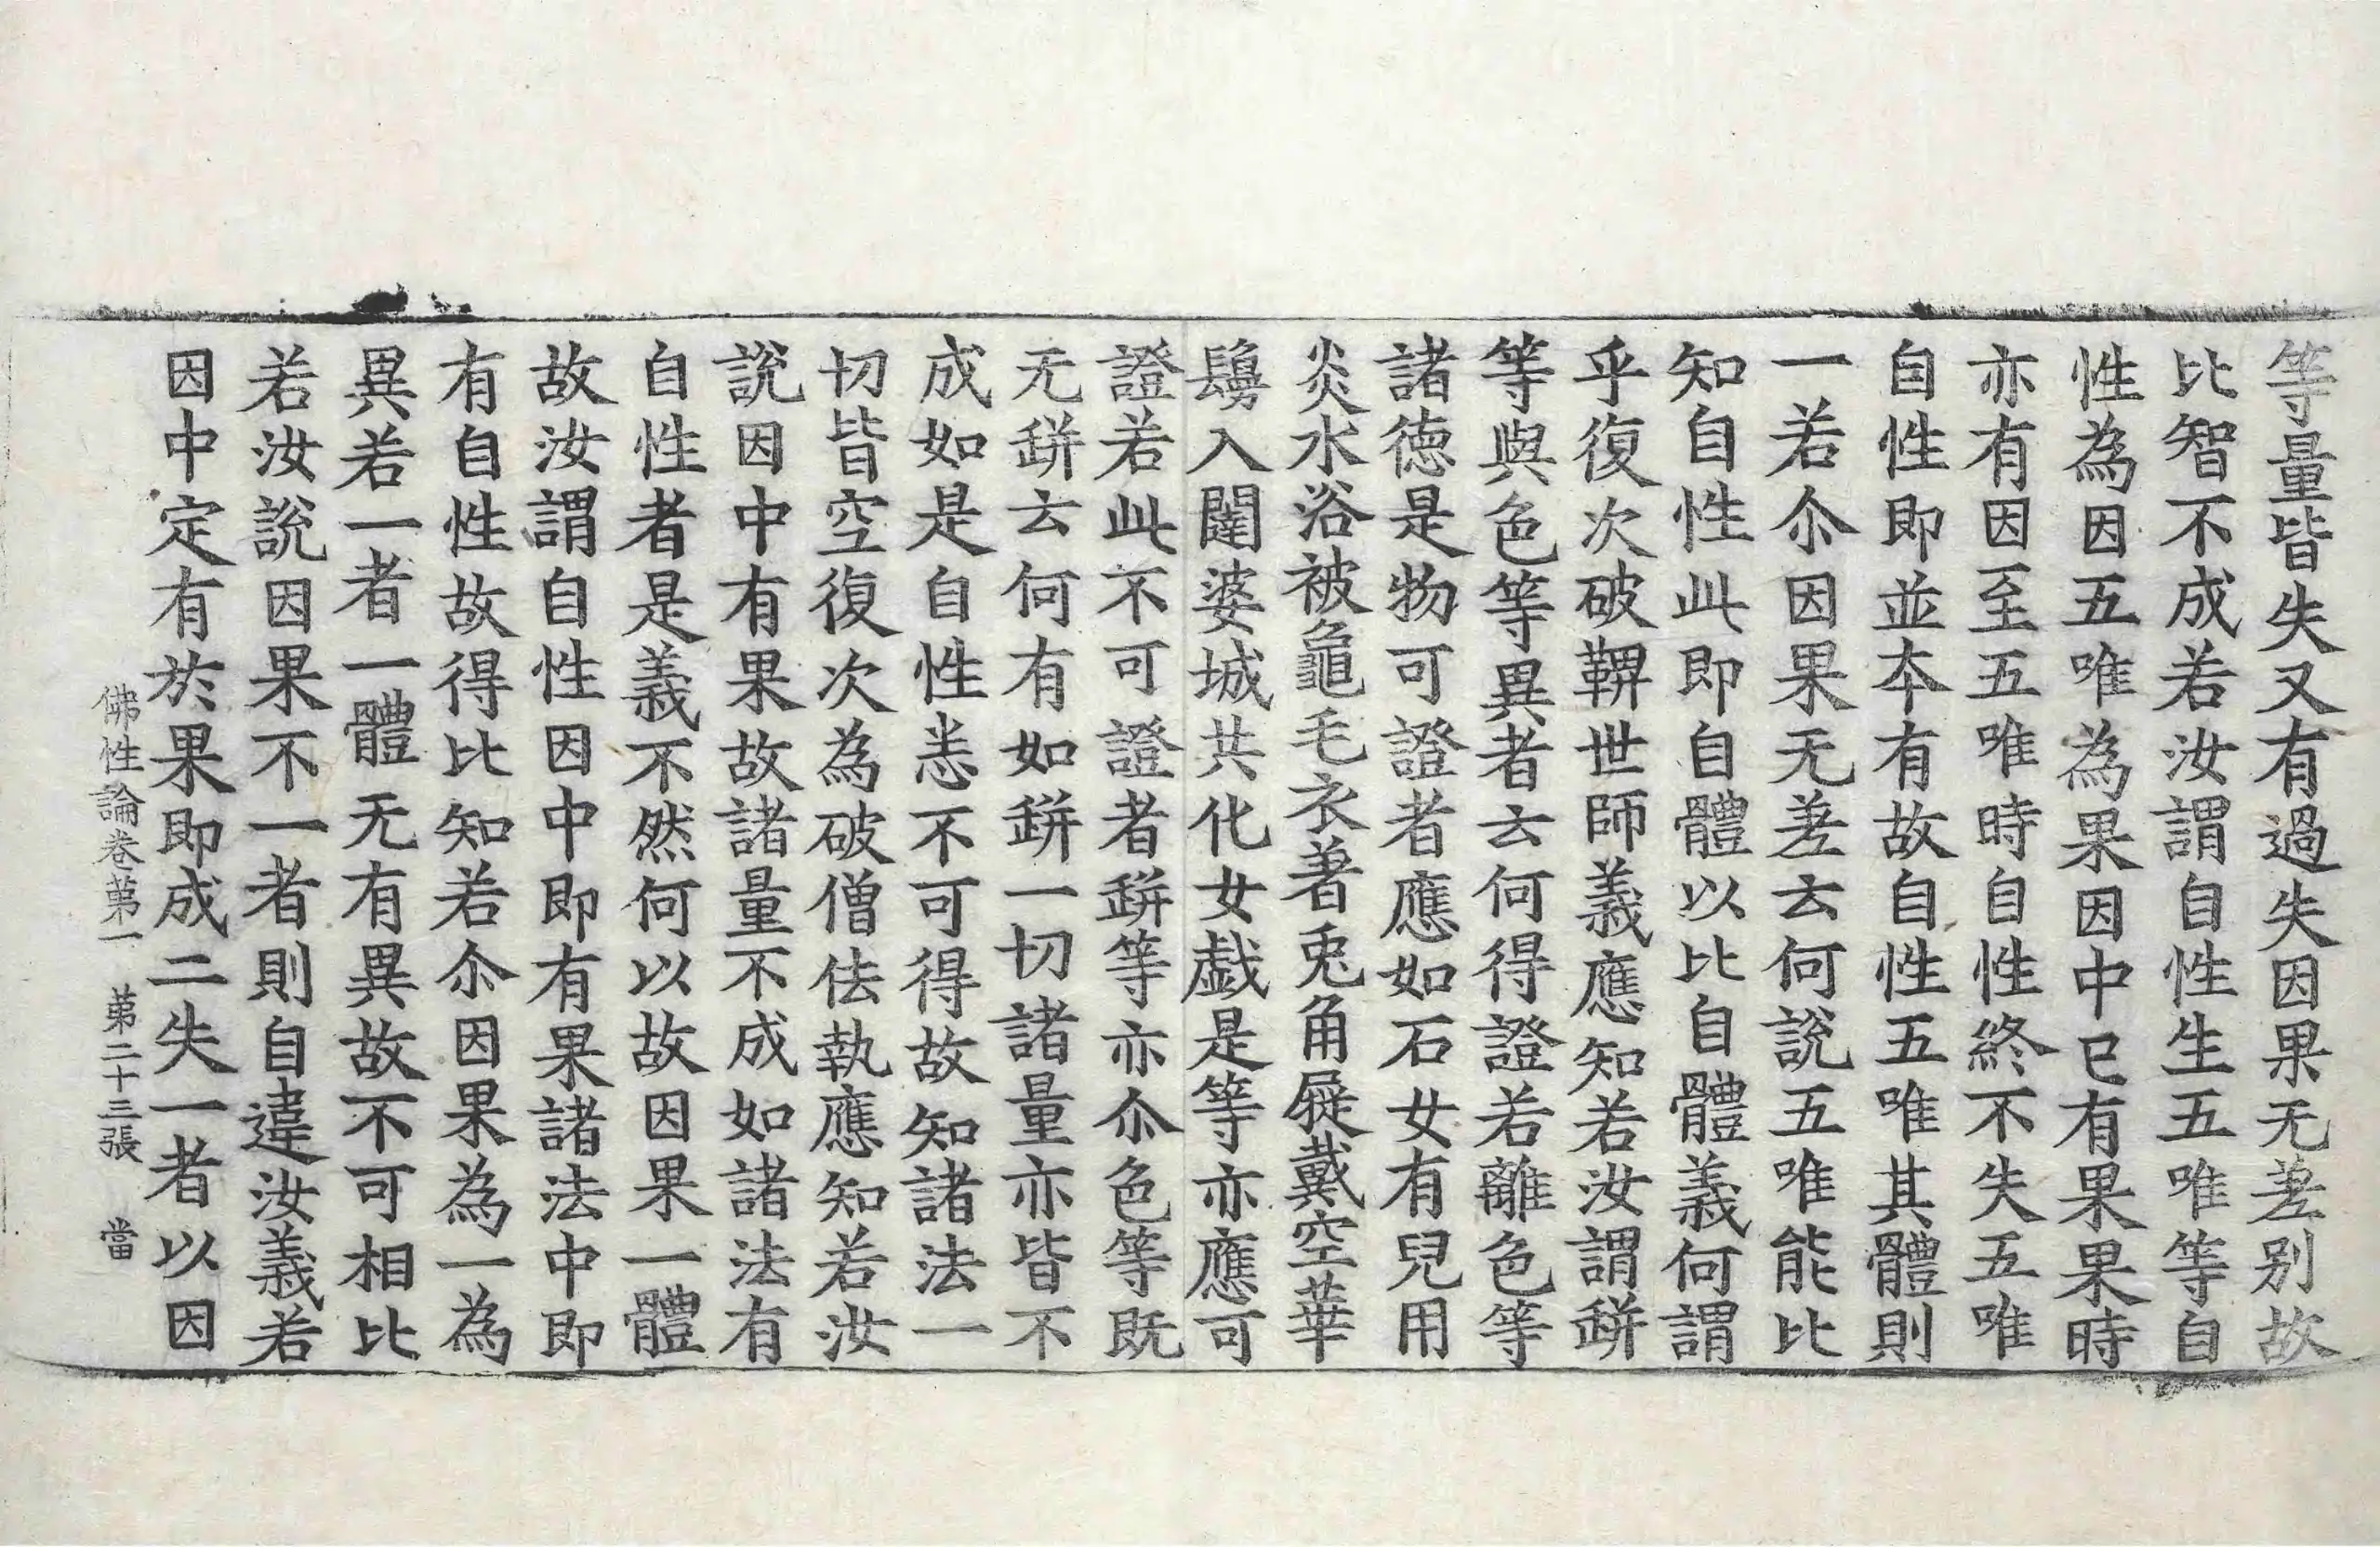 等量皆失又有過失因果无差别故
比智不成若汝謂自性生五唯等自
性為因五唯為果因中已有果果時
亦有因至五唯時自性終不失五唯
自性即並本有故自性五唯其體則
一若尒因果无差云何說五唯能比
知自性此即自體以比自體義何謂
乎復次破鞞世師義應知若汝謂缾
等與色等異者云何得證若離色等
諸德是物可證者應如石女有兒用
炎水浴被龜毛衣著兎角屣戴空華
鬘入闥婆城共化女戱是等亦應可
證若此不可證者缾等亦尒色等既
无缾云何有如缾一切諸量亦皆不
成如是自性悉不可得故知諸法一
切皆空復次為破僧佉執應知若汝
說因中有果故諸量不成如諸法有
自性者是義不然何以故因果一體
故汝謂自性因中即有果諸法中即
有自性故得比知若尒因果為一為
異若一者一體无有異故不可相比
若汝說因果不一者則自違汝義若
因中定有於果即成二失一者以因
佛性論卷第一 第二十三張 當